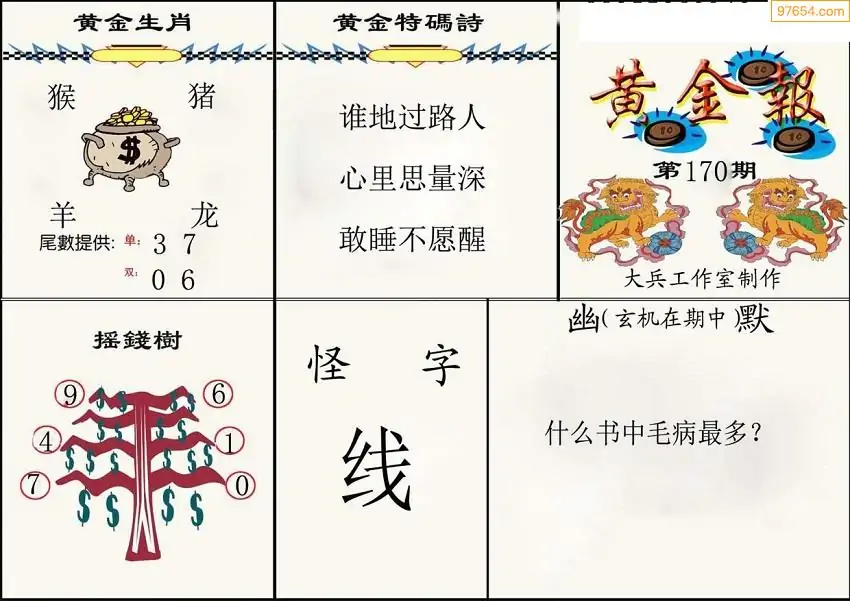 97654.com
黄金生肖
猴 猪
$
羊 龙
尾數提供: 单: 3 7
双: 0 6
黄金特碼詩
谁地过路人
心里思量深
敢睡不愿醒
黄金報
10
10
10
第170期
大兵工作室制作
摇錢樹
9 6
4 1
7 0
怪 字
线
幽(玄机在期中)默
什么书中毛病最多?